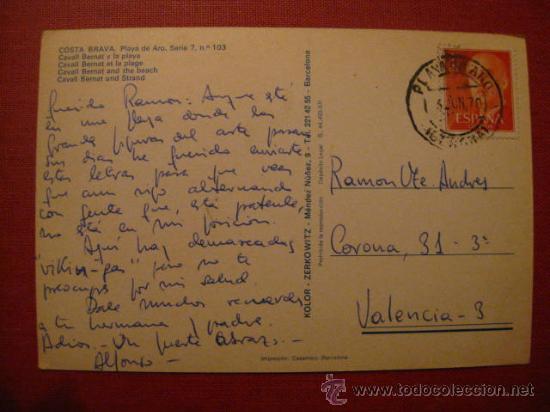 COSTA BRAVA. Playa de Aro. Serie 7, n.º 103
Cavall Bernat y la playa
Cavall Bernat et la plage
Cavall Bernat and the beach
Cavall Bernat und Strand
Querido Ramon: Aunque esté
en una playa donde las
grandes figuras del arte pasan
sus dias he querido enviarte
estas letras para que veas
que aun sigo alternando
con gente que, está pretende
no está en mi posición.
Aquí hay demasiadas
"vikin-gas" pero no te
preocupes por mi salud.
Dale muchos recuerdos
a tu hermana y padre.
Adios.- Un fuerte abrazo.-
Alfonso.-
KOLOR - ZERKOWITZ - Méndez Núñez, 5 - Tel. 221 42 55 - Barcelona
Prohibida la reproducción Depósito Legal B.
PLAYA DE ARO
JUN 70
(GERONA)
ESPAÑA
Ramon Vte. Andres
Corona, 31-3ª
Valencia-3
Impresión: Casamajó, Barcelona
todocoleccion
www.todocoleccion.net